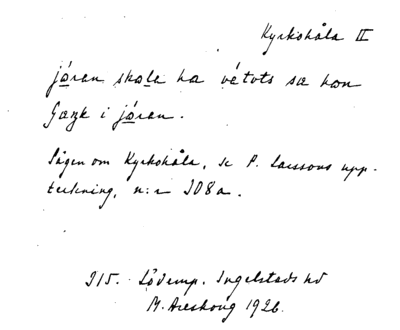 Kyrkshåla II
jǫran skǫla ha vétots sæ hon
gæk i jǫran.
Sägen om Kyrkshåla, se P. Larssons upp-
teckning, n:r 308a.
315. Löderup. Ingelstads hd
M. Areskoug 1926.